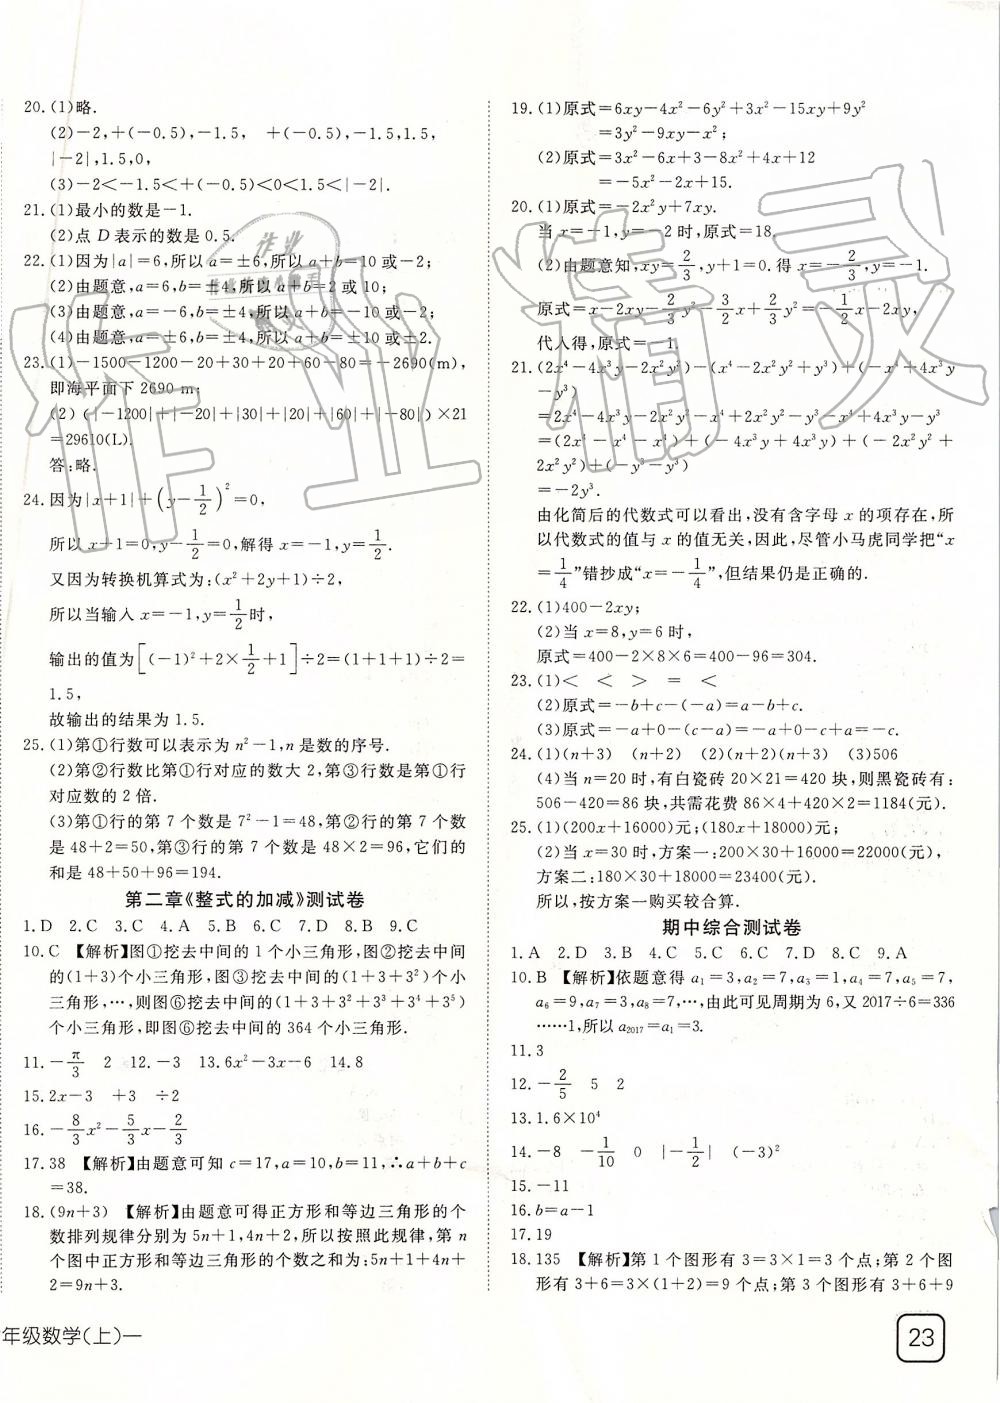 20.(1)略.
(2)-2,+(-0.5),-1.5, +(-0.5),-1.5,1.5,
|-2|,1.5,0,
(3)-2<-1.5<+(-0.5)<0<1.5<|-2|.
21.(1)最小的数是-1.
(2)点 D 表示的数是 0.5.
22.(1)因为|a|=6,所以 a=±6,所以 a+b=10 或-2;
(2)由题意,a=6,b=±4,所以 a+b=2 或 10;
(3)由题意,a=-6,b=±4,所以 a+b=-10 或-2;
(4)由题意,a=±6,b=±4,所以 a+b=±10 或±2.
23.(1)-1500-1200-20+30+20+60-80=-2690(m),
即海平面下 2690 m;
(2)(|-1200|+|-20|+|30|+|20|+|60|+|-80|)×21
=29610(L).
答:略.
24.因为|x+1|+(y-1/2)²=0,
所以 x+1=0,y-1/2=0,解得 x=-1,y=1/2.
又因为转换机算式为:(x²+2y+1)÷2,
所以当输入 x=-1,y=1/2时,
输出的值为[(-1)²+2×1/2+1]÷2=(1+1+1)÷2=
1.5,
故输出的结果为 1.5.
25.(1)第①行数可以表示为 n²-1,n 是数的序号.
(2)第②行数比第①行对应的数大 2,第③行数是第①行
对应数的 2 倍.
(3)第①行的第 7 个数是 7²-1=48,第②行的第 7 个数
是 48+2=50,第③行的第 7 个数是 48×2=96,它们的
和是 48+50+96=194.
第二章《整式的加减》测试卷
1.D 2.C 3.C 4.D 5.B 6.C 7.D 8.B 9.C
10.C 【解析】图①挖去中间的 1 个小三角形,图②挖去中间
的(1+3)个小三角形,图③挖去中间的(1+3+3²)个小
三角形,…,则图⑥挖去中间的(1+3+3²+3³+3⁴+3⁵)
个小三角形,即图⑥挖去中间的 364 个小三角形.
11.-π/3 2 12.-3 13.6x²-3x-6 14.8
15.2x-3 +3 ÷2
16.-8/3x²-5/3x-2/3
17.38 【解析】由题意可知 c=17,a=10,b=11,∴a+b+c
=38.
18.(9n+3) 【解析】由题意可得正方形和等边三角形的个
数排列规律分别为 5n+1,4n+2,所以按照此规律,第 n
个图中正方形和等边三角形的个数之和为:5n+1+4n
+2=9n+3.
年级数学(上)一
19.(1)原式=6xy-4x²-6y²+3x²-15xy+9y²
=3y²-9xy-x²;
(2)原式=3x²-6x+3-8x²+4x+12
=-5x²-2x+15.
20.(1)原式=-2x²y+7xy.
当 x=-1,y=-2 时,原式=18.
(2)由题意知,xy-2/3=0,y+1=0.得 x=-2/3,y=-1.
原式=x-2xy-2/3y²-3/2x+2/3y²=-1/2x-2xy,
代入得,原式=-1.
21.(2x⁴-4x³y-2x²y²)-(x⁴-2x²y²+y³)+(-x⁴+4x³y
-y³)
=2x⁴-4x³y-2x²y²-x⁴+2x²y²-y³-x⁴+4x³y-y³
=(2x⁴-x⁴-x⁴)+(-4x³y+4x³y)+(-2x²y²+
2x²y²)+(-y³-y³)
=-2y³.
由化简后的代数式可以看出,没有含字母 x 的项存在,所
以代数式的值与 x 的值无关,因此,尽管小马虎同学把“x
=1/4”错抄成“x=-1/4”,但结果仍是正确的.
22.(1)400-2xy;
(2)当 x=8,y=6 时,
原式=400-2×8×6=400-96=304.
23.(1)< < > = <
(2)原式=-b+c-(-a)=a-b+c.
(3)原式=-a+0-(c-a)=-a+0-c+a=-c.
24.(1)(n+3) (n+2) (2)(n+2)(n+3) (3)506
(4)当 n=20 时,有白瓷砖 20×21=420 块,则黑瓷砖有:
506-420=86 块,共需花费 86×4+420×2=1184(元).
25.(1)(200x+16000)元;(180x+18000)元.
(2)当 x=30 时,方案一:200×30+16000=22000(元),
方案二:180×30+18000=23400(元).
所以,按方案一购买较合算.
期中综合测试卷
1.A 2.D 3.B 4.C 5.C 6.C 7.D 8.C 9.A
10.B 【解析】依题意得 a₁=3,a₂=7,a₃=1,a₄=7,a₅=7,
a₆=9,a₇=3,a₈=7,…,由此可见周期为 6,又 2017÷6=336
……1,所以 a₂₀₁₇=a₁=3.
11.3
12.-2/5 5 2
13.1.6×10⁴
14.-8 -1/10 0 |-1/2| (-3)²
15.-11
16.b=a-1
17.19
18.135 【解析】第 1 个图形有 3=3×1=3 个点;第 2 个图
形有 3+6=3×(1+2)=9 个点;第 3 个图形有 3+6+9
23
作业精灵
作业